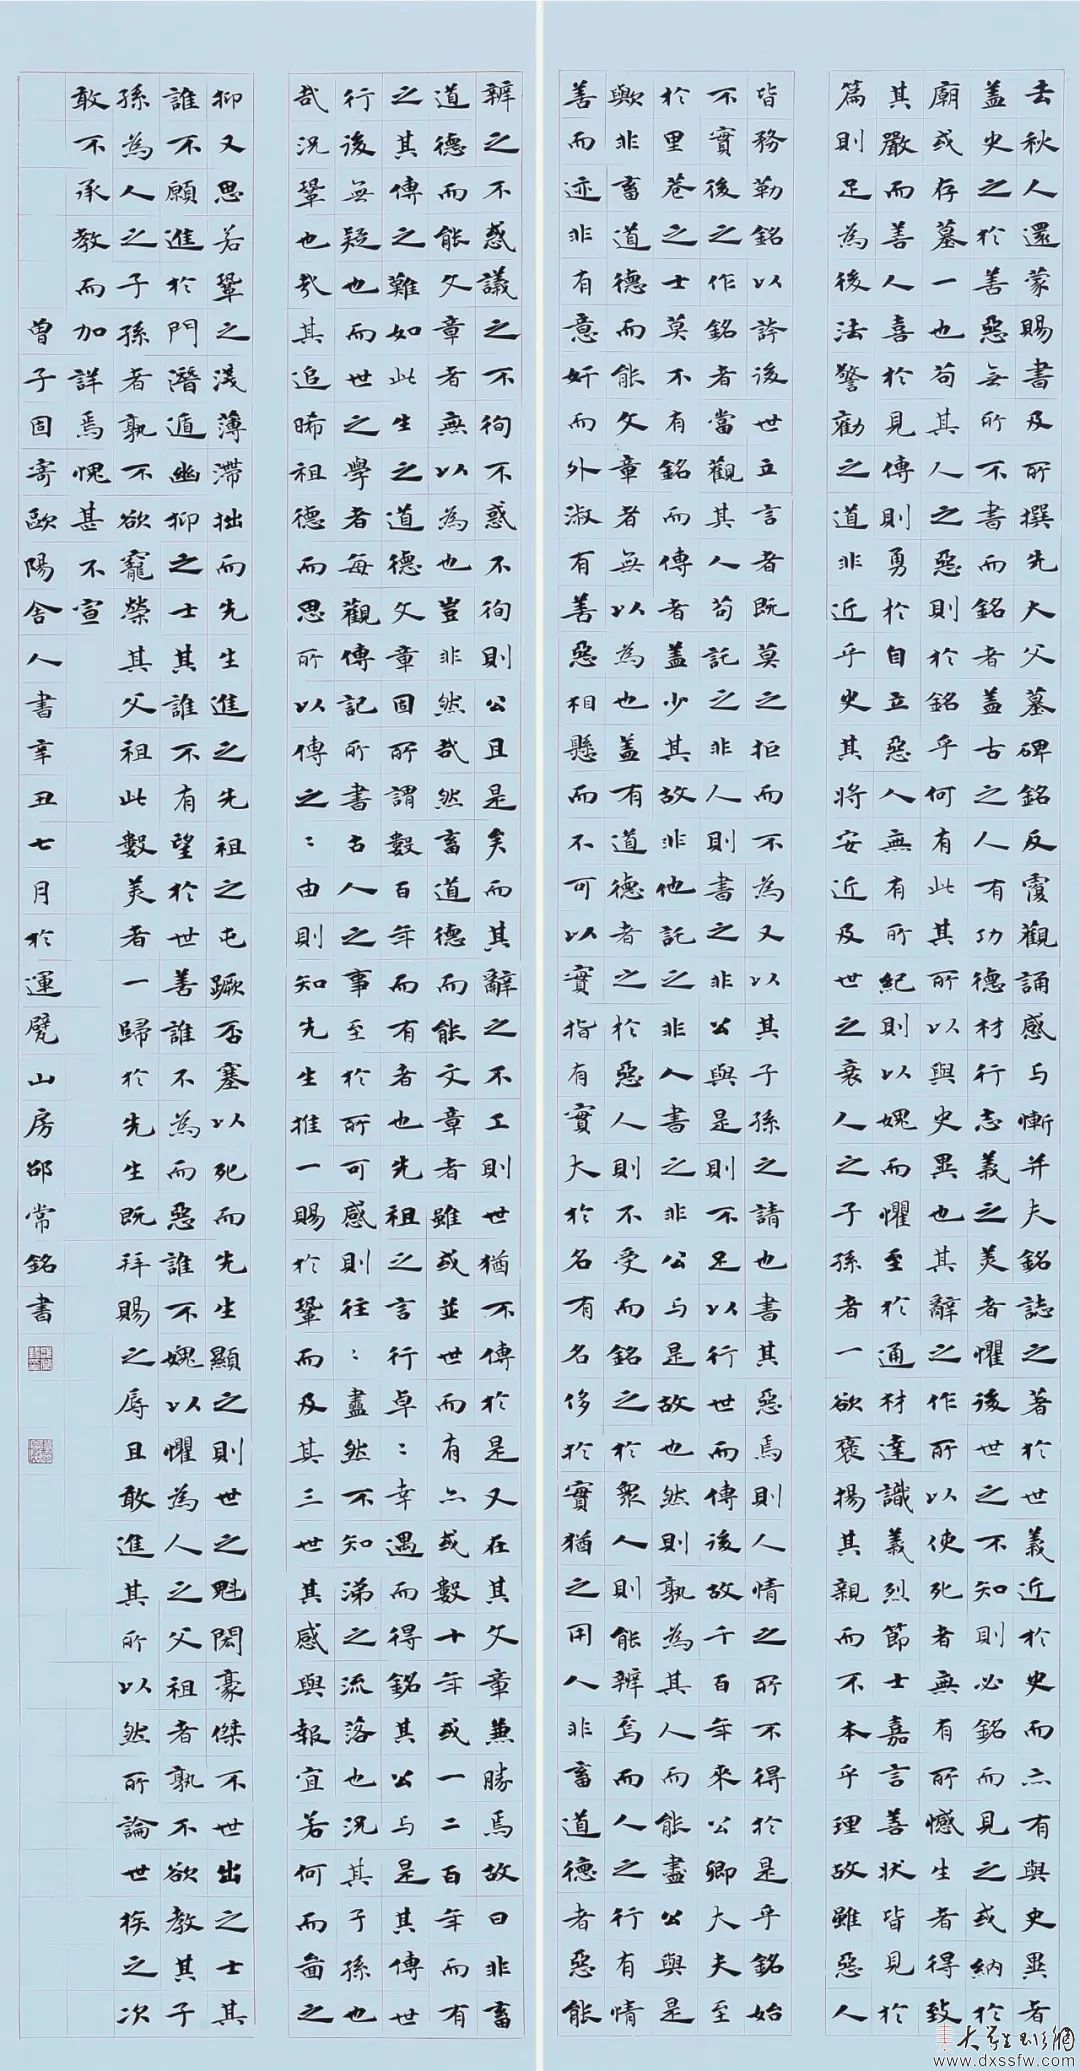 去秋人還蒙賜書及所撰先大父墓碑銘反覆觀誦感与慚并夫銘誌之著於世義近於史而亦有與史異者
盖史之於善惡無所不書而銘者盖古之人有功德材行志義之美者懼後世之不知則必銘而見之或納於
廟或存墓一也苟其人之惡則於銘乎何有此其所以與史異也其辭之作所以使死者無有所憾生者得致
其嚴而善人喜於見傳則勇於自立惡人無有所紀則以媿而懼至於通材達識義烈節士嘉言善状皆見於
篇則足為後法警勸之道非近乎史其将安近及世之衰人之子孫者一欲褒揚其親而不本乎理故雖惡人
皆務勒銘以誇後世立言者既莫之拒而不為又以其子孫之請也書其惡焉則人情之所不得於是乎銘始
不實後之作銘者當觀其人苟託之非人則書之非公與是則不足以行世而傳後故千百年來公卿大夫至
於里巷之士莫不有銘而傳者盖少其故非他託之非人書之非公与是故也然則孰為其人而能盡公與是
歟非畜道德而能文章者無以為也盖有道德者之於惡人則不受而銘之於衆人則能辨焉而人之行有情
善而迹非有意奸而外淑有善惡相懸而不可以實指有實大於名有名侈於實猶之用人非畜道德者惡能
辨之不惑議之不徇不惑不徇則公且是矣而其辭之不工則世猶不傳於是又在其文章兼勝焉故曰非畜
道德而能文章者無以為也豈非然哉然畜道德而能文章者雖或並世而有亦或數十年或一二百年而有
之其傳之難如此生之道德文章固所謂數百年而有者也先祖之言行卓〻幸遇而得銘其公与是其傳世
行後無疑也而世之學者每觀傳記所書古人之事至於所可感則往〻盡然不知涕之流落也況其子孫也
哉況鞏也哉其追晞祖德而思所以傳之〻由則知先生推一賜於鞏而及其三世其感與報宜若何而啚之
抑又思若鞏之淺薄滯拙而先生進之先祖之屯蹶否塞以死而先生顯之則世之魁閎豪傑不世出之士其
誰不願進於門潛遁幽抑之士其誰不有望於世善誰不為而惡誰不媿以懼為人之父祖者孰不欲教其子
孫為人之子孫者孰不欲寵榮其父祖此數美者一歸於先生既拜賜之辱且敢進其所以然所論世族之次
敢不承教而加詳焉愧甚不宣
曾子固寄歐陽舍人書辛丑七月於運甓山房邵常銘書
www.dxssfw.com